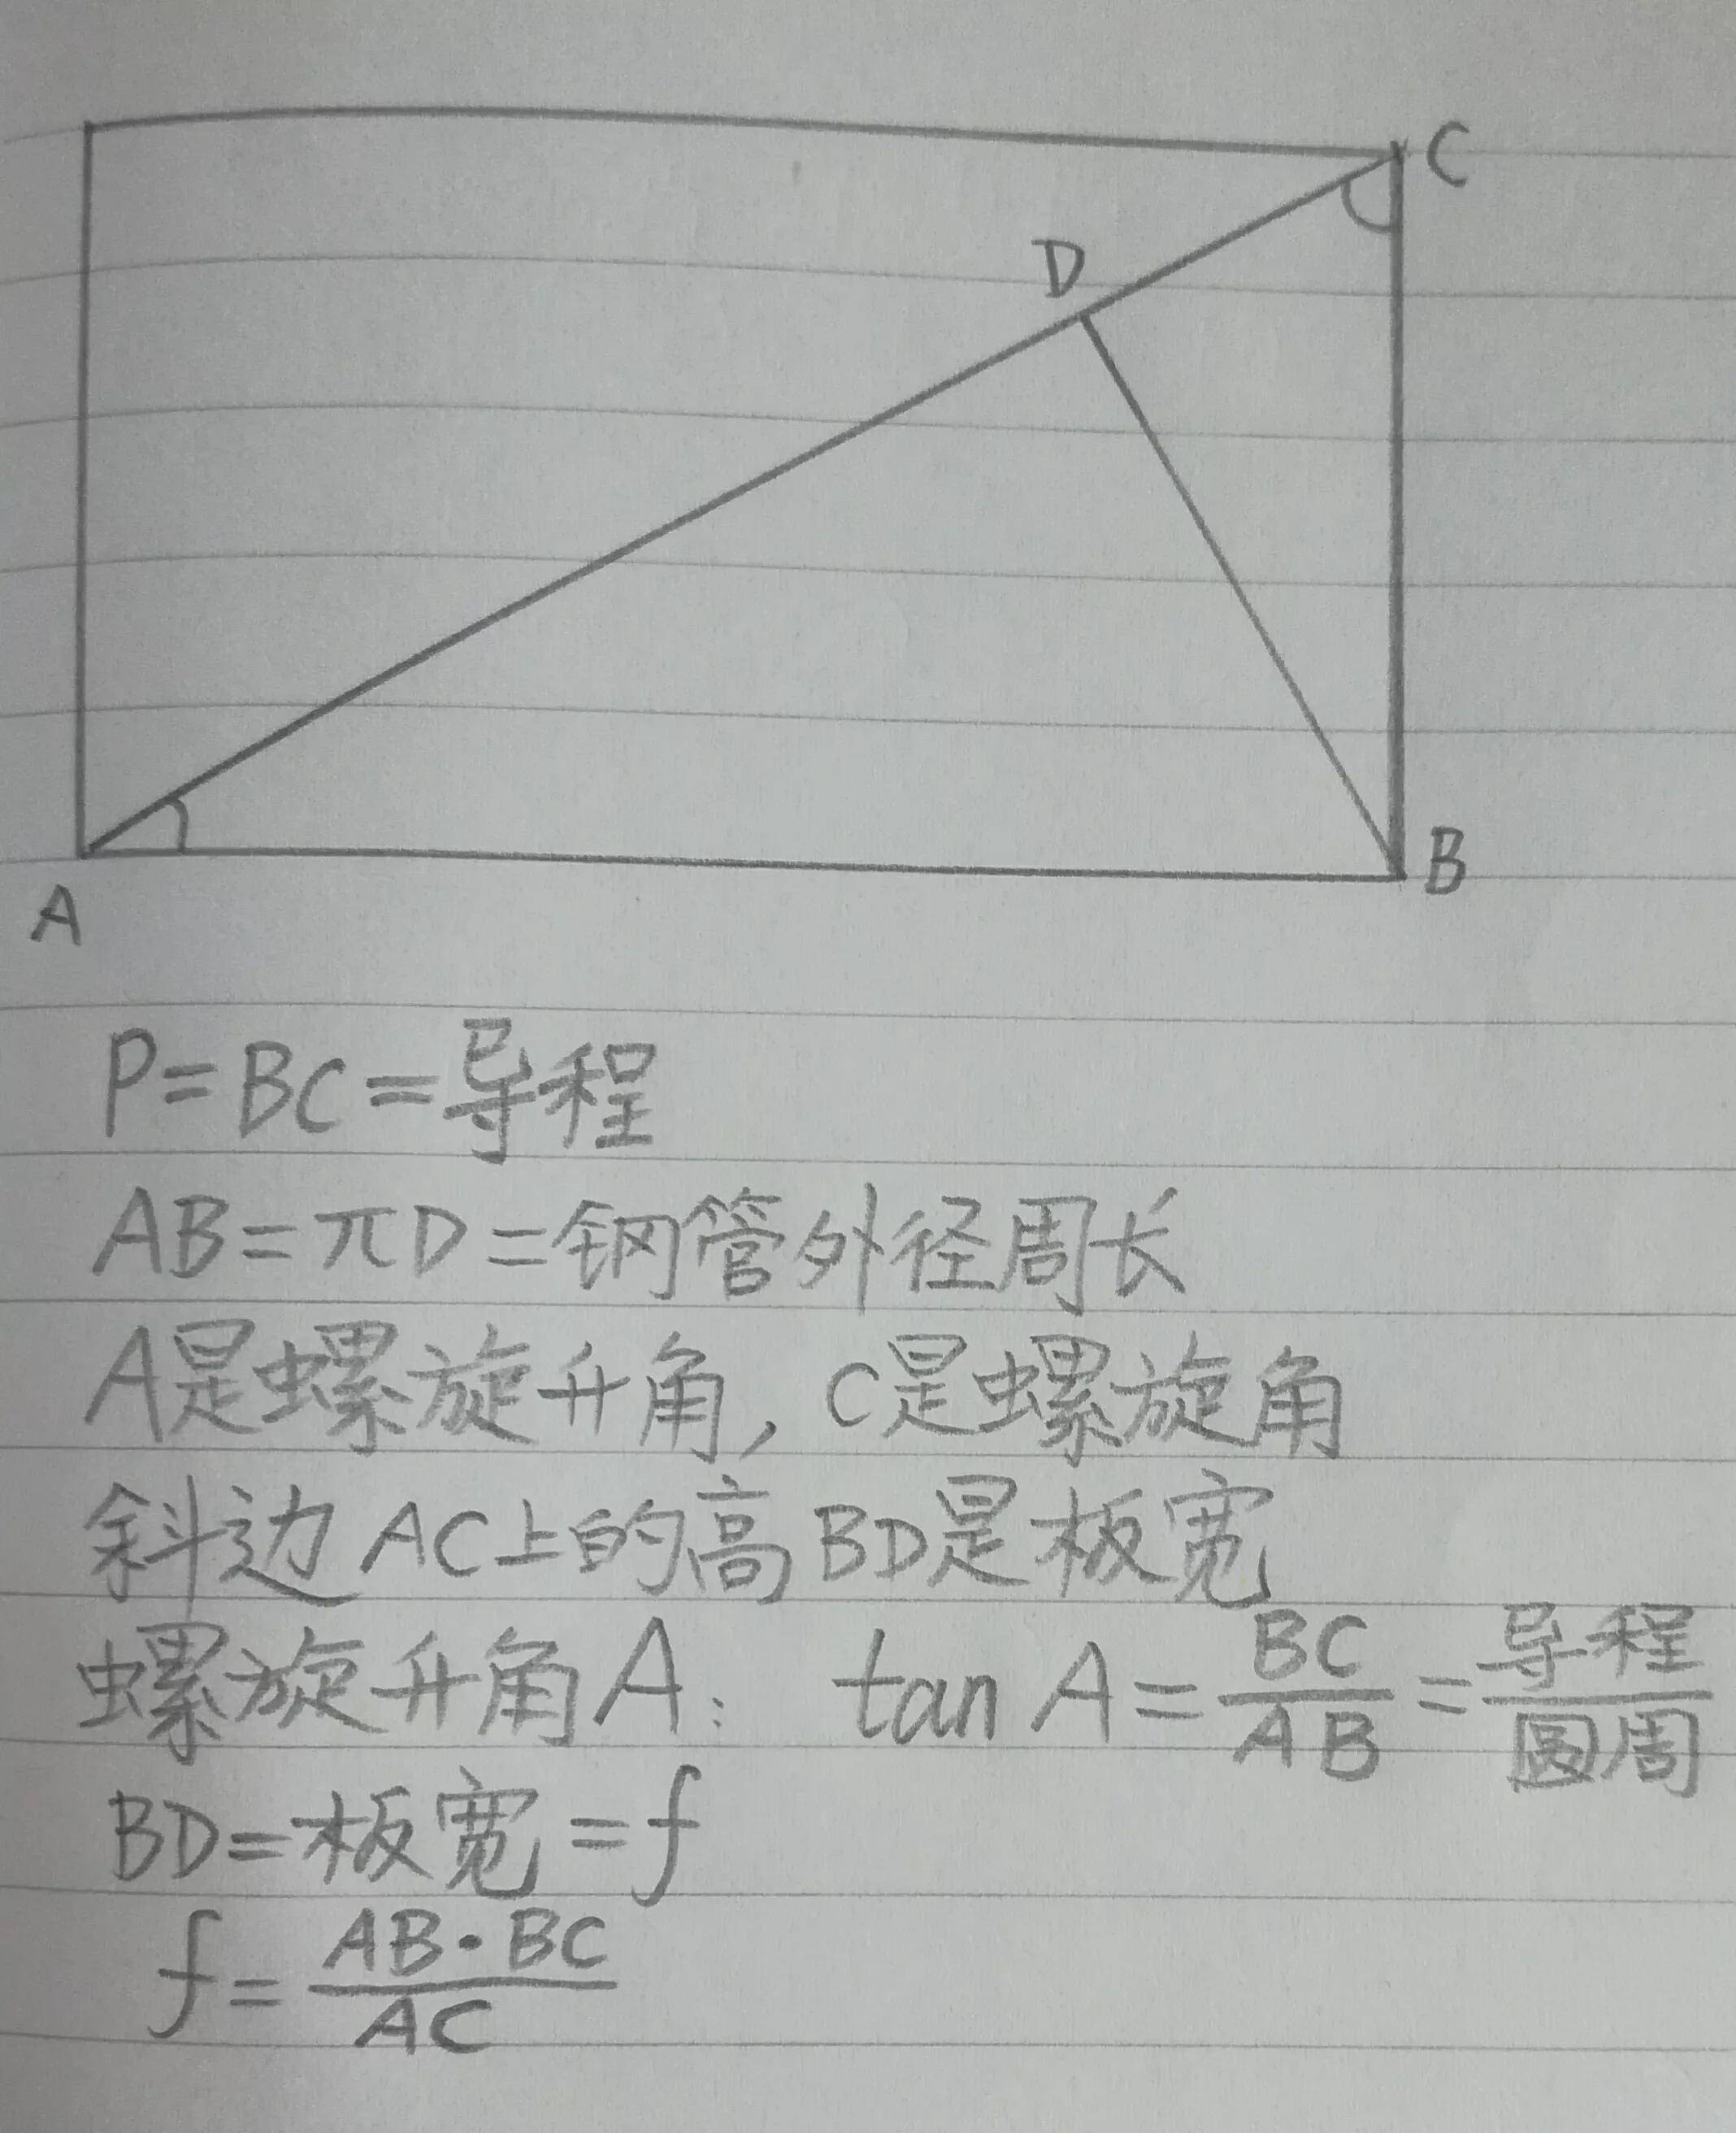 C
D
A
B
P=BC=导程
AB=πD=钢管外径周长
A是螺旋升角,C是螺旋角
斜边AC上的高BD是板宽
螺旋升角A: tan A=BC/AB=导程/圆周
BD=板宽=f
f=AB·BC/AC